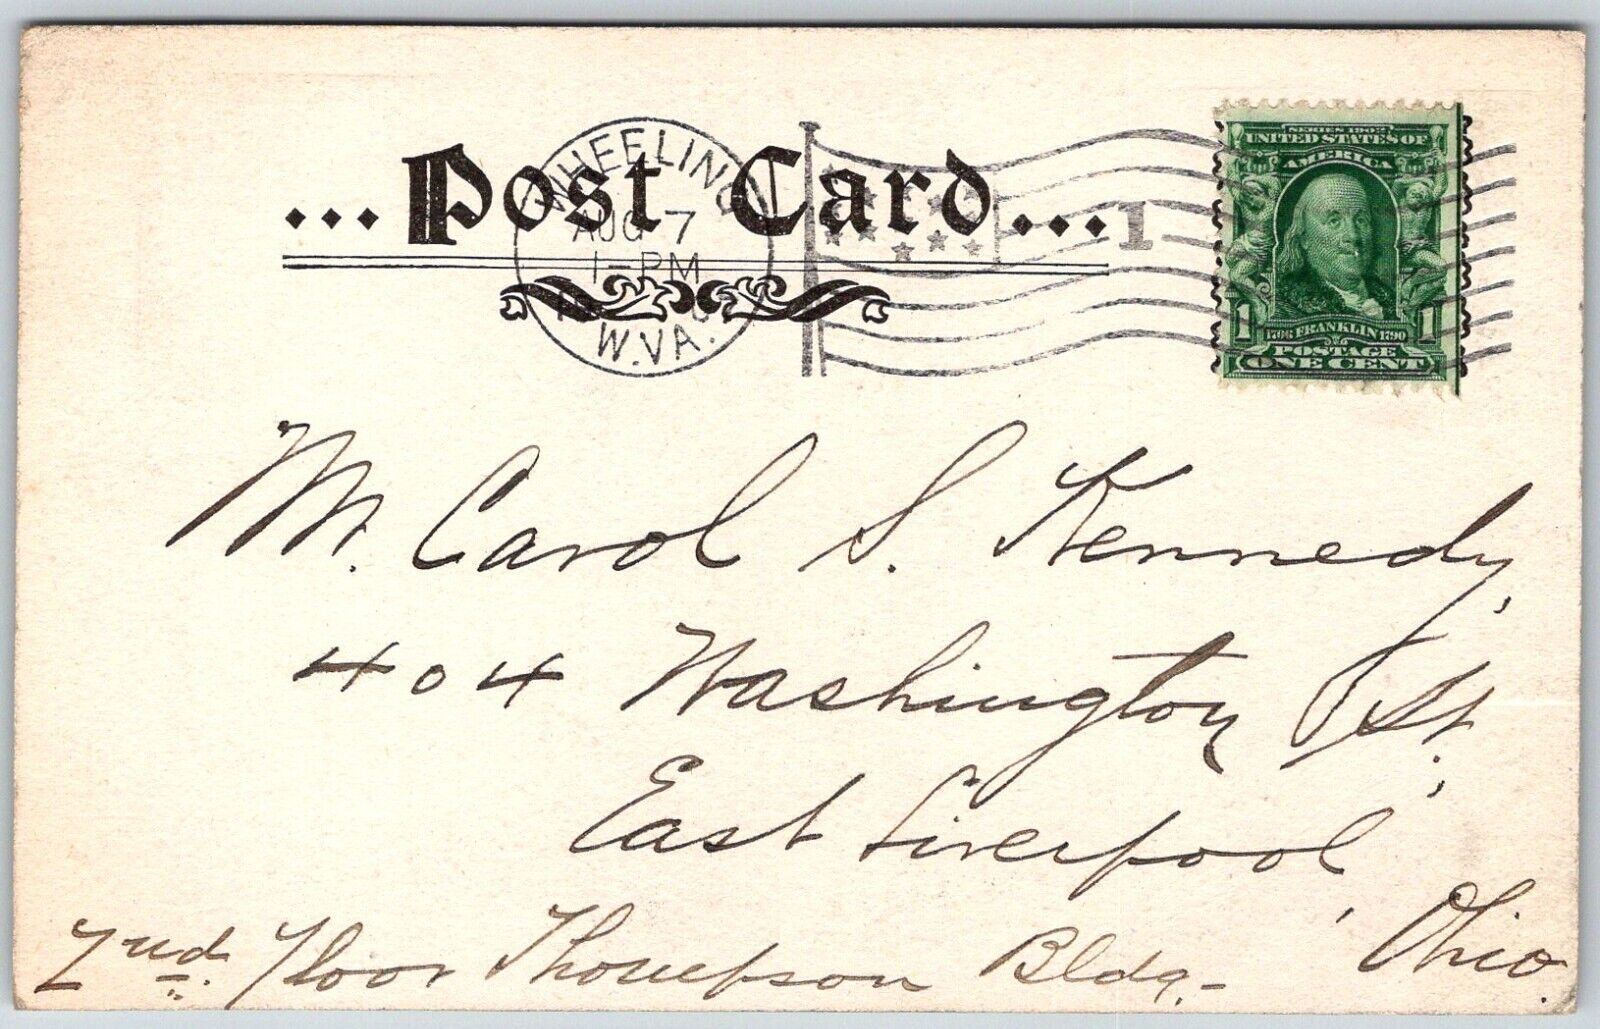 ...Post Card...
WHEELING
AUG 7
1-PM
W.VA.
1
SERIES 1902
UNITED STATES OF
AMERICA
1 1706 FRANKLIN 1790 1
POSTAGE
ONE CENT
Mr. Carol S. Kennedy,
404 Washington St.,
East Liverpool,
Ohio.
2nd. Floor Thompson Bldg.-